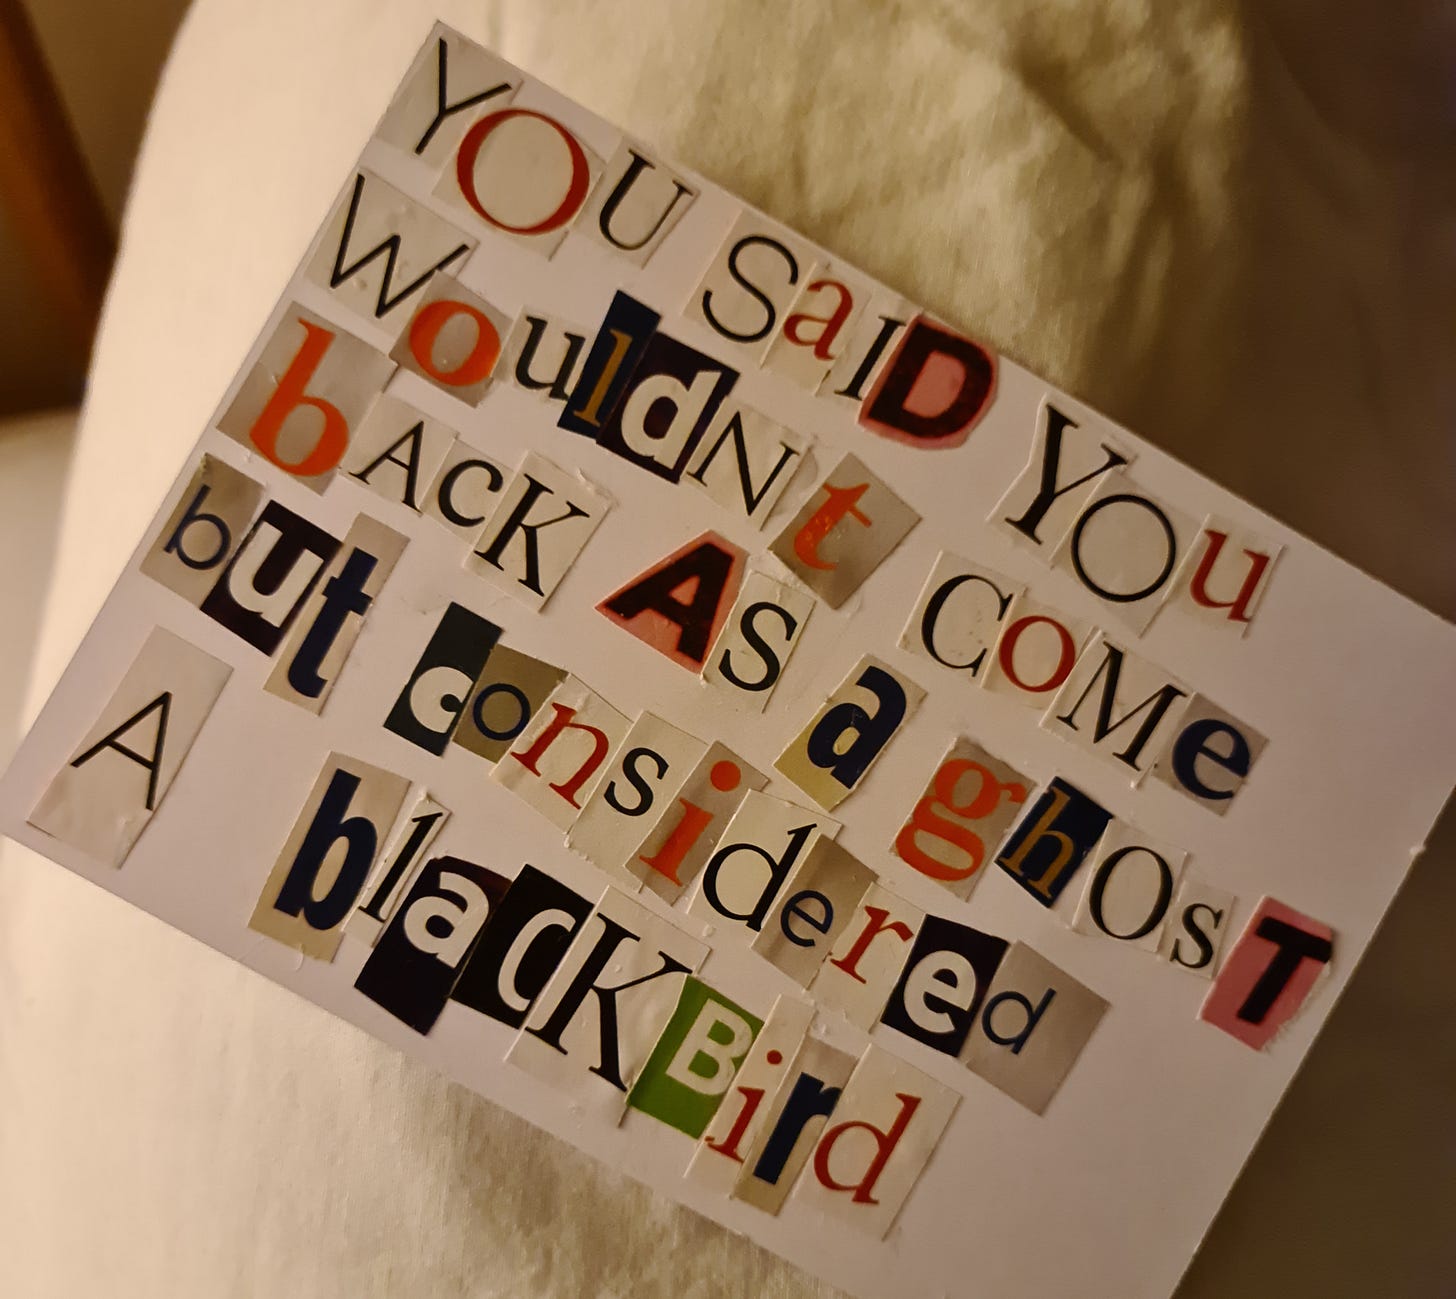 YOU SaID YOu
WouldNt COMe
bAcK AS a ghOsT
bUt considered
A blaCKBird